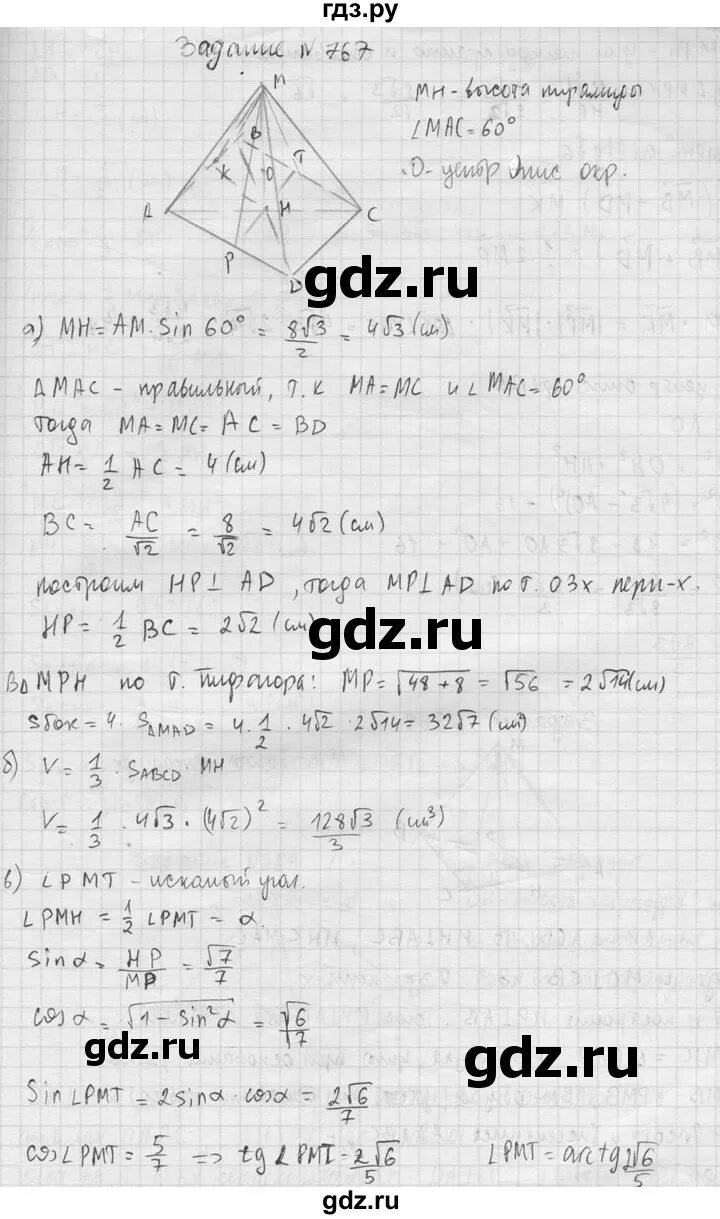 гдз.ру
Задание N 767
M
B
T
K
O
A
H
C
P
D
MH - высота пирамиды
∠MAC = 60°
O - центр опис окр.
gdz.ru
gdz.ru
а) MH = AM · Sin 60° = 8√3/2 = 4√3 (см)
ΔMAC - правильный, т.к MA = MC и ∠MAC = 60°
тогда MA = MC = AC = BD
gdz.ru
AH = 1/2 AC = 4 (см)
BC = AC/√2 = 8/√2 = 4√2 (см)
gdz.ru
построим HP ⊥ AD, тогда MP ⊥ AD по т. о 3х перп-х.
HP = 1/2 BC = 2√2 (см)
gdz.ru
В Δ MPH по т. Пифагора: MP = √48+8 = √56 = 2√14 (см)
Sбок = 4 · SΔMAD = 4 · 1/2 · 4√2 · 2√14 = 32√7 (см²)
gdz.ru
б) V = 1/3 · SABCD · MH
V = 1/3 · 4√3 · (4√2)² = 128√3/3 (см³)
gdz.ru
в) ∠PMT - искомый угол.
∠PMH = 1/2 ∠PMT = α.
Sin α = HP/MP = √7/7
gdz.ru
cos α = √1 - sin²α = √6/√7
gdz.ru
Sin ∠PMT = 2 sin α · cos α = 2√6/7
cos ∠PMT = 5/7 => tg ∠PMT = 2√6/5 ∠PMT = arctg 2√6/5
gdz.ru
gdz.ru
gdz.ru